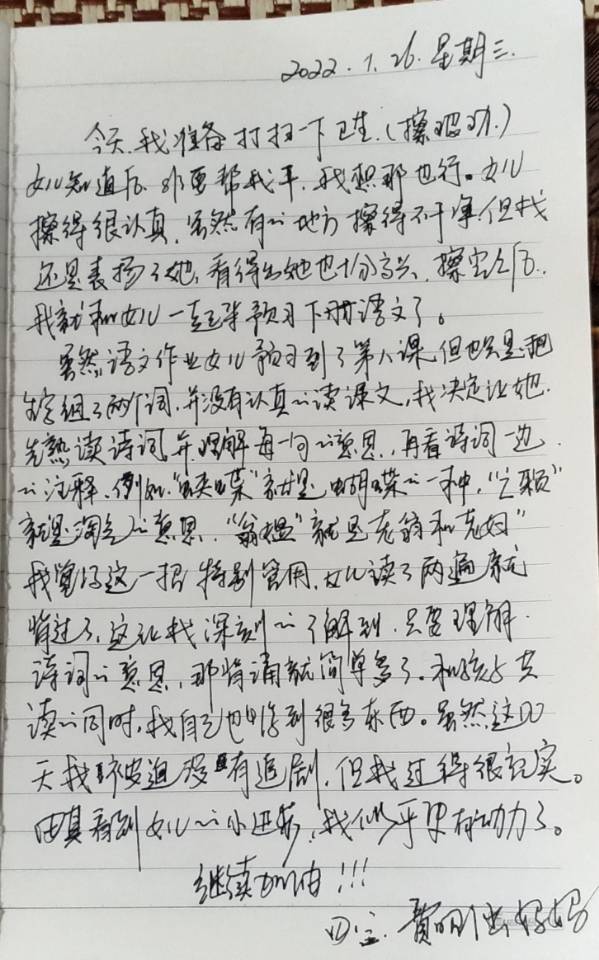 2022.1.26.星期三.
今天,我准备打扫一下卫生.(擦玻璃.)
女儿知道后.非要帮我干,我想那也行。女儿
擦得很认真,虽然有的地方擦得不干净.但我
还是表扬了她,看得出她也十分高兴.擦完之后.
我就和女儿一起来预习下册语文了。
虽然语文作业女儿预习到了第八课,但也只是把
生字组了两个词,并没有认真的读课文,我决定让她
先熟读诗词,并理解每一句的意思,再看诗词一边
的注释.例如"蛱蝶"就是蝴蝶的一种,"亡赖"
就是淘气的意思."翁媪"就是老翁和老妇"
我觉得这一招特别管用,女儿读了两遍就
背过了,这让我深刻的了解到.只要理解
诗词的意思,那背诵就简单多了。和孩子共
读的同时,我自己也得到很多东西。虽然这
天我被迫没有追剧,但我过得很充实。
尤其看到女儿的小进步,我似乎更有动力了。
继续加油!!!
妈妈